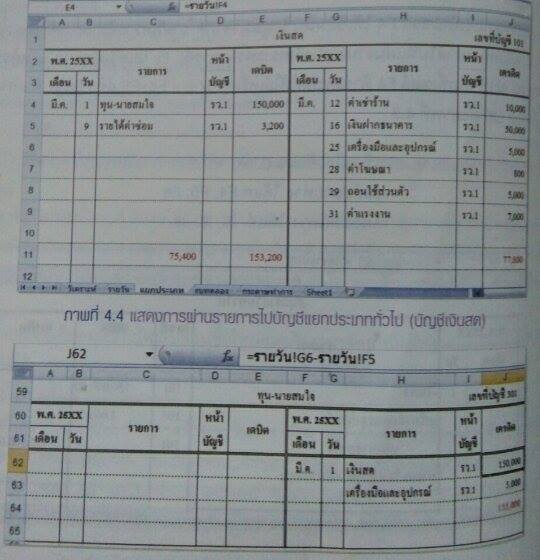 E4 fx =รายวัน!F4
A B C D E F G H I J
1 เงินสด เลขที่บัญชี 101
2 พ.ศ. 25XX รายการ หน้า เดบิต พ.ศ. 25XX รายการ หน้า เครดิต
3 เดือน วัน บัญชี เดือน วัน บัญชี
4 มี.ค. 1 ทุน-นายสมใจ รว.1 150,000 มี.ค. 12 ค่าเช่าร้าน รว.1 10,000
5 9 รายได้ค่าซ่อม รว.1 3,200 16 เงินฝากธนาคาร รว.1 50,000
6 25 เครื่องมือและอุปกรณ์ รว.1 5,000
7 28 ค่าโฆษณา รว.1 800
8 29 ถอนใช้ส่วนตัว รว.1 5,000
9 31 ค่าแรงงาน รว.1 7,000
10
11 75,400 153,200 77,800
12
วิเคราะห์ รายวัน แยกประเภท งบทดลอง กระดาษทำการ Sheet1
ภาพที่ 4.4 แสดงการผ่านรายการไปบัญชีแยกประเภททั่วไป (บัญชีเงินสด)
J62 fx =รายวัน!G6-รายวัน!F5
A B C D E F G H I J
59 ทุน-นายสมใจ เลขที่บัญชี 301
60 พ.ศ. 25XX รายการ หน้า เดบิต พ.ศ. 25XX รายการ หน้า เครดิต
61 เดือน วัน บัญชี เดือน วัน บัญชี
62 มี.ค. 1 เงินสด รว.1 150,000
63 เครื่องมือและอุปกรณ์ รว.1 5,000
64 155,000
65